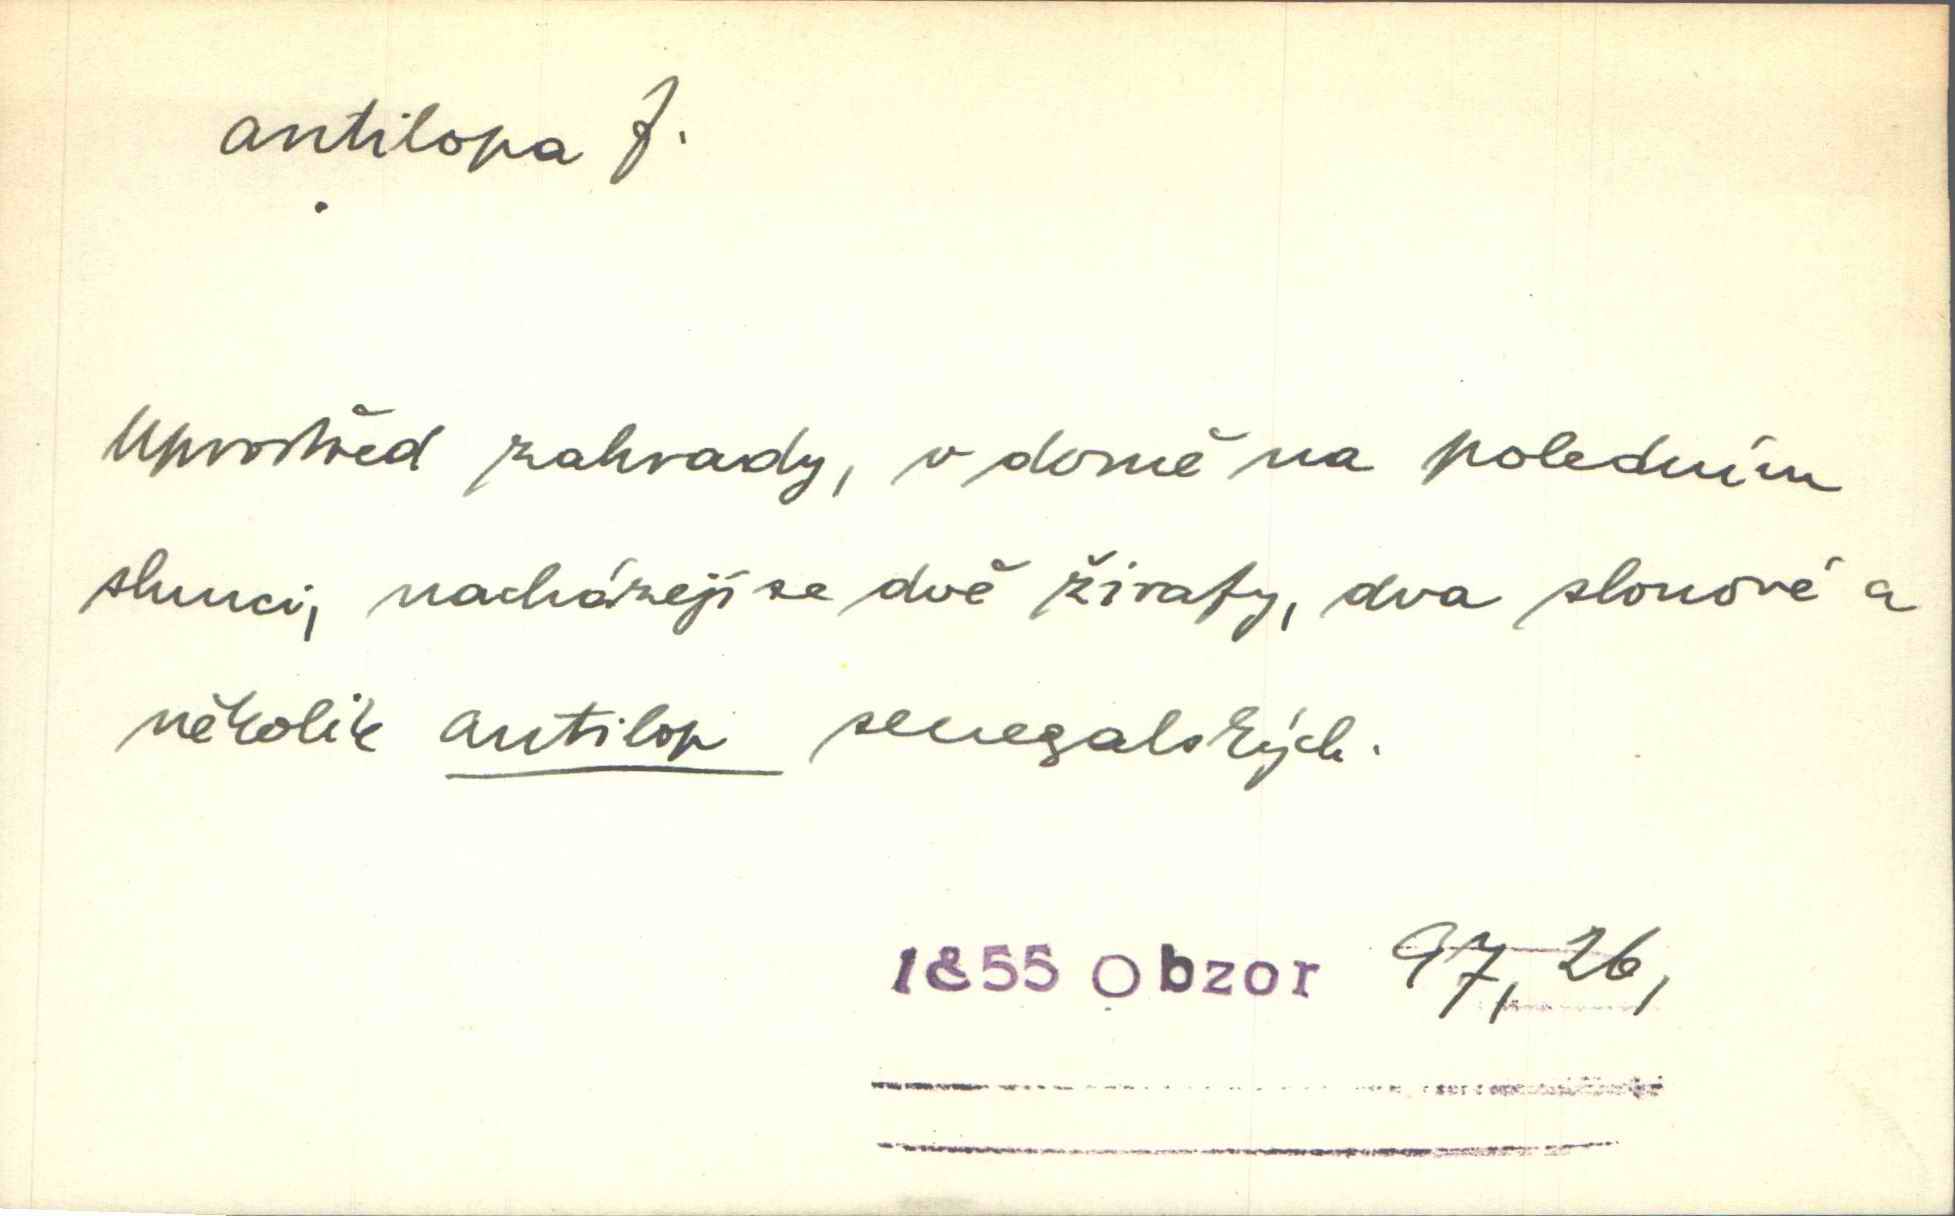 antilopa f.
Uprostřed zahrady, v domě na poledním
slunci, nacházejí se dvě žirafy, dva slonové a
několik antilop senegalských.
1855 Obzor 97, 26,